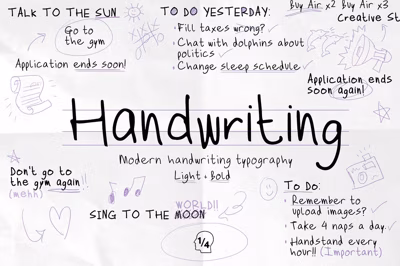 TALK TO THE SUN
Go to
the gym
Application ends soon!
TO DO YESTERDAY:
• Fill taxes wrong?
• Chat with dolphins about
politics
• Change sleep schedule
Buy Air x2 Buy Air x3
Creative St
Application ends
soon again!
Handwriting
Modern handwriting typography
Light + Bold
Don't go to
the gym again!!
(mehh)
SING TO THE MOON
WORLD!!
1/4
To Do:
• Remember to
upload images?
• Take 4 naps a day.
• Handstand every
hour!! (Important)